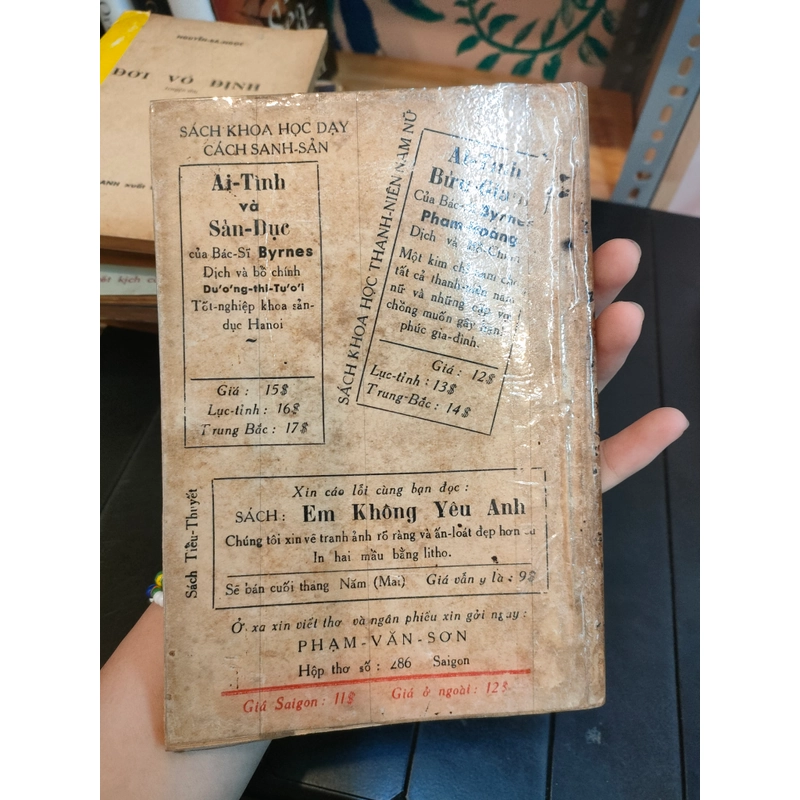 NGUYỄN-BÁ-NGỌC
ĐỜI VÔ ĐỊNH
ANH xuất
kịch
SÁCH KHOA HỌC DẠY
CÁCH SANH-SẢN
Ai-Tình
và
Sản-Dục
của Bác-Sĩ Byrnes
Dịch và bồ chính
Dương-thi-Tươi
Tốt-nghiệp khoa sản-
dục Hanoi
Giá : 15$
Lục-tỉnh : 16$
Trung Bắc : 17$
SÁCH KHOA HỌC THANH-NIÊN NAM NỮ
Của Bác-Sĩ Byrnes
Dịch và
Một kim chỉ nam cho
tất cả thanh-niên nam
nữ và những cặp vợ
chồng muốn gây hạnh
phúc gia-đình.
Giá : 12$
Lục-tỉnh : 13$
Trung-Bắc : 14$
Sách Tiều-Thuyết
Xin cáo lỗi cùng bạn đọc :
SÁCH : Em Không Yêu Anh
Chúng tôi xin vẽ tranh ảnh rõ ràng và ấn-loát đẹp hơn
In hai mầu bằng litho.
Sẽ bán cuối thang Năm (Mai) Giá vẫn y là : 9$
Ở xa xin viết thơ và ngân phiếu xin gởi ngay :
PHẠM-VĂN-SƠN
Hộp thơ số : 286 Saigon
Giá Saigon : 11$ Giá ở ngoài : 12$